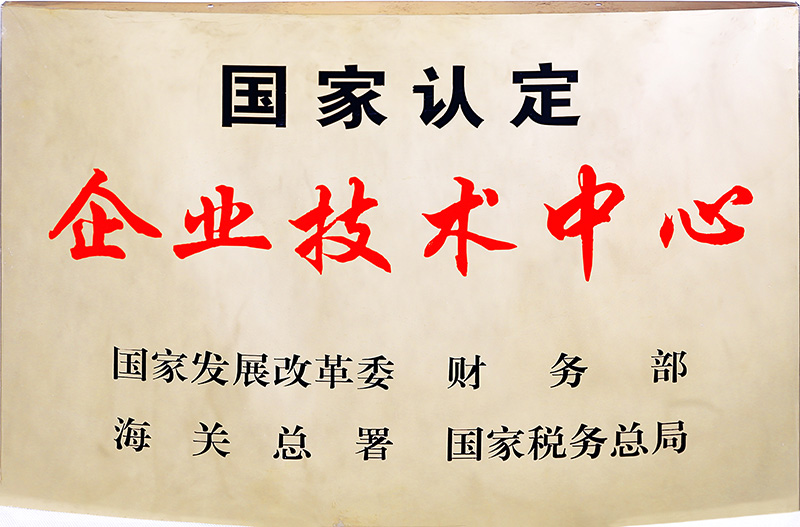 国家认定
企业技术中心
国家发展改革委 财务部
海关总署 国家税务总局